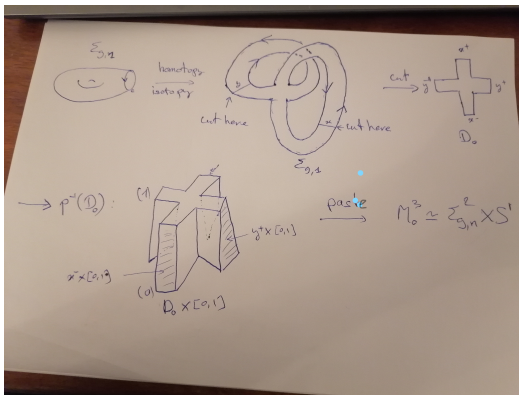 Σg,1
homotopy
isotopy
cut here
cut here
Σg,1
cut
x⁺
y⁺
x⁻
D₀
→ p⁻¹(D₀) :
(1)
(0)
x⁻ × [0,1]
y⁺ × [0,1]
D₀ × [0,1]
paste
M₀³ ≃ Σ²g,n × S¹